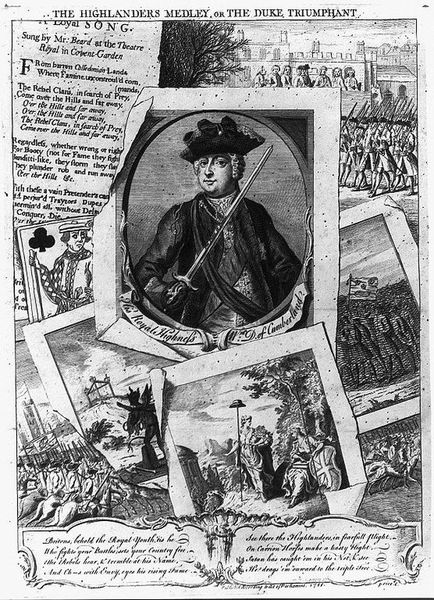 THE HIGHLANDERS MEDLEY, or THE DUKE TRIUMPHANT
A Loyal SONG.
Sung by Mr. Beard at the Theatre
Royal in Covent-Garden
From barren Caledonian Lands,
Where Famine uncontroul'd com
mands,
The Rebel Clans, in search of Prey,
Come over the Hills and far away.
Over the Hills and far away,
Over the Hills and far away,
The Rebel Clans, in search of Prey,
Come over the Hills and far away.
Regardless, whether wrong or righ
For Booty (not for Fame they figh
Banditti-like, they storm, they sla
They plunder, rob and run away
Over the Hills &c.
With these a vain Pretender's ca
perjur'd Traytors, Dupes
all, without De
Conquer, Die
His Royal Highness Wm. D. of Cumberland
Britons, behold the Royal Youth, 'tis he
Who fights your Battles, sets your Country free
The Rebels hear, & tremble at his Name,
And with Envy, eyes his rising Fame.
See there the Highlanders, in fearfull flight,
On Carrion Horses make a hasty flight
Satan has caught 'em in his Net, & see
He drags 'em onward to the triple tree
according to Act of Parliament, 1746